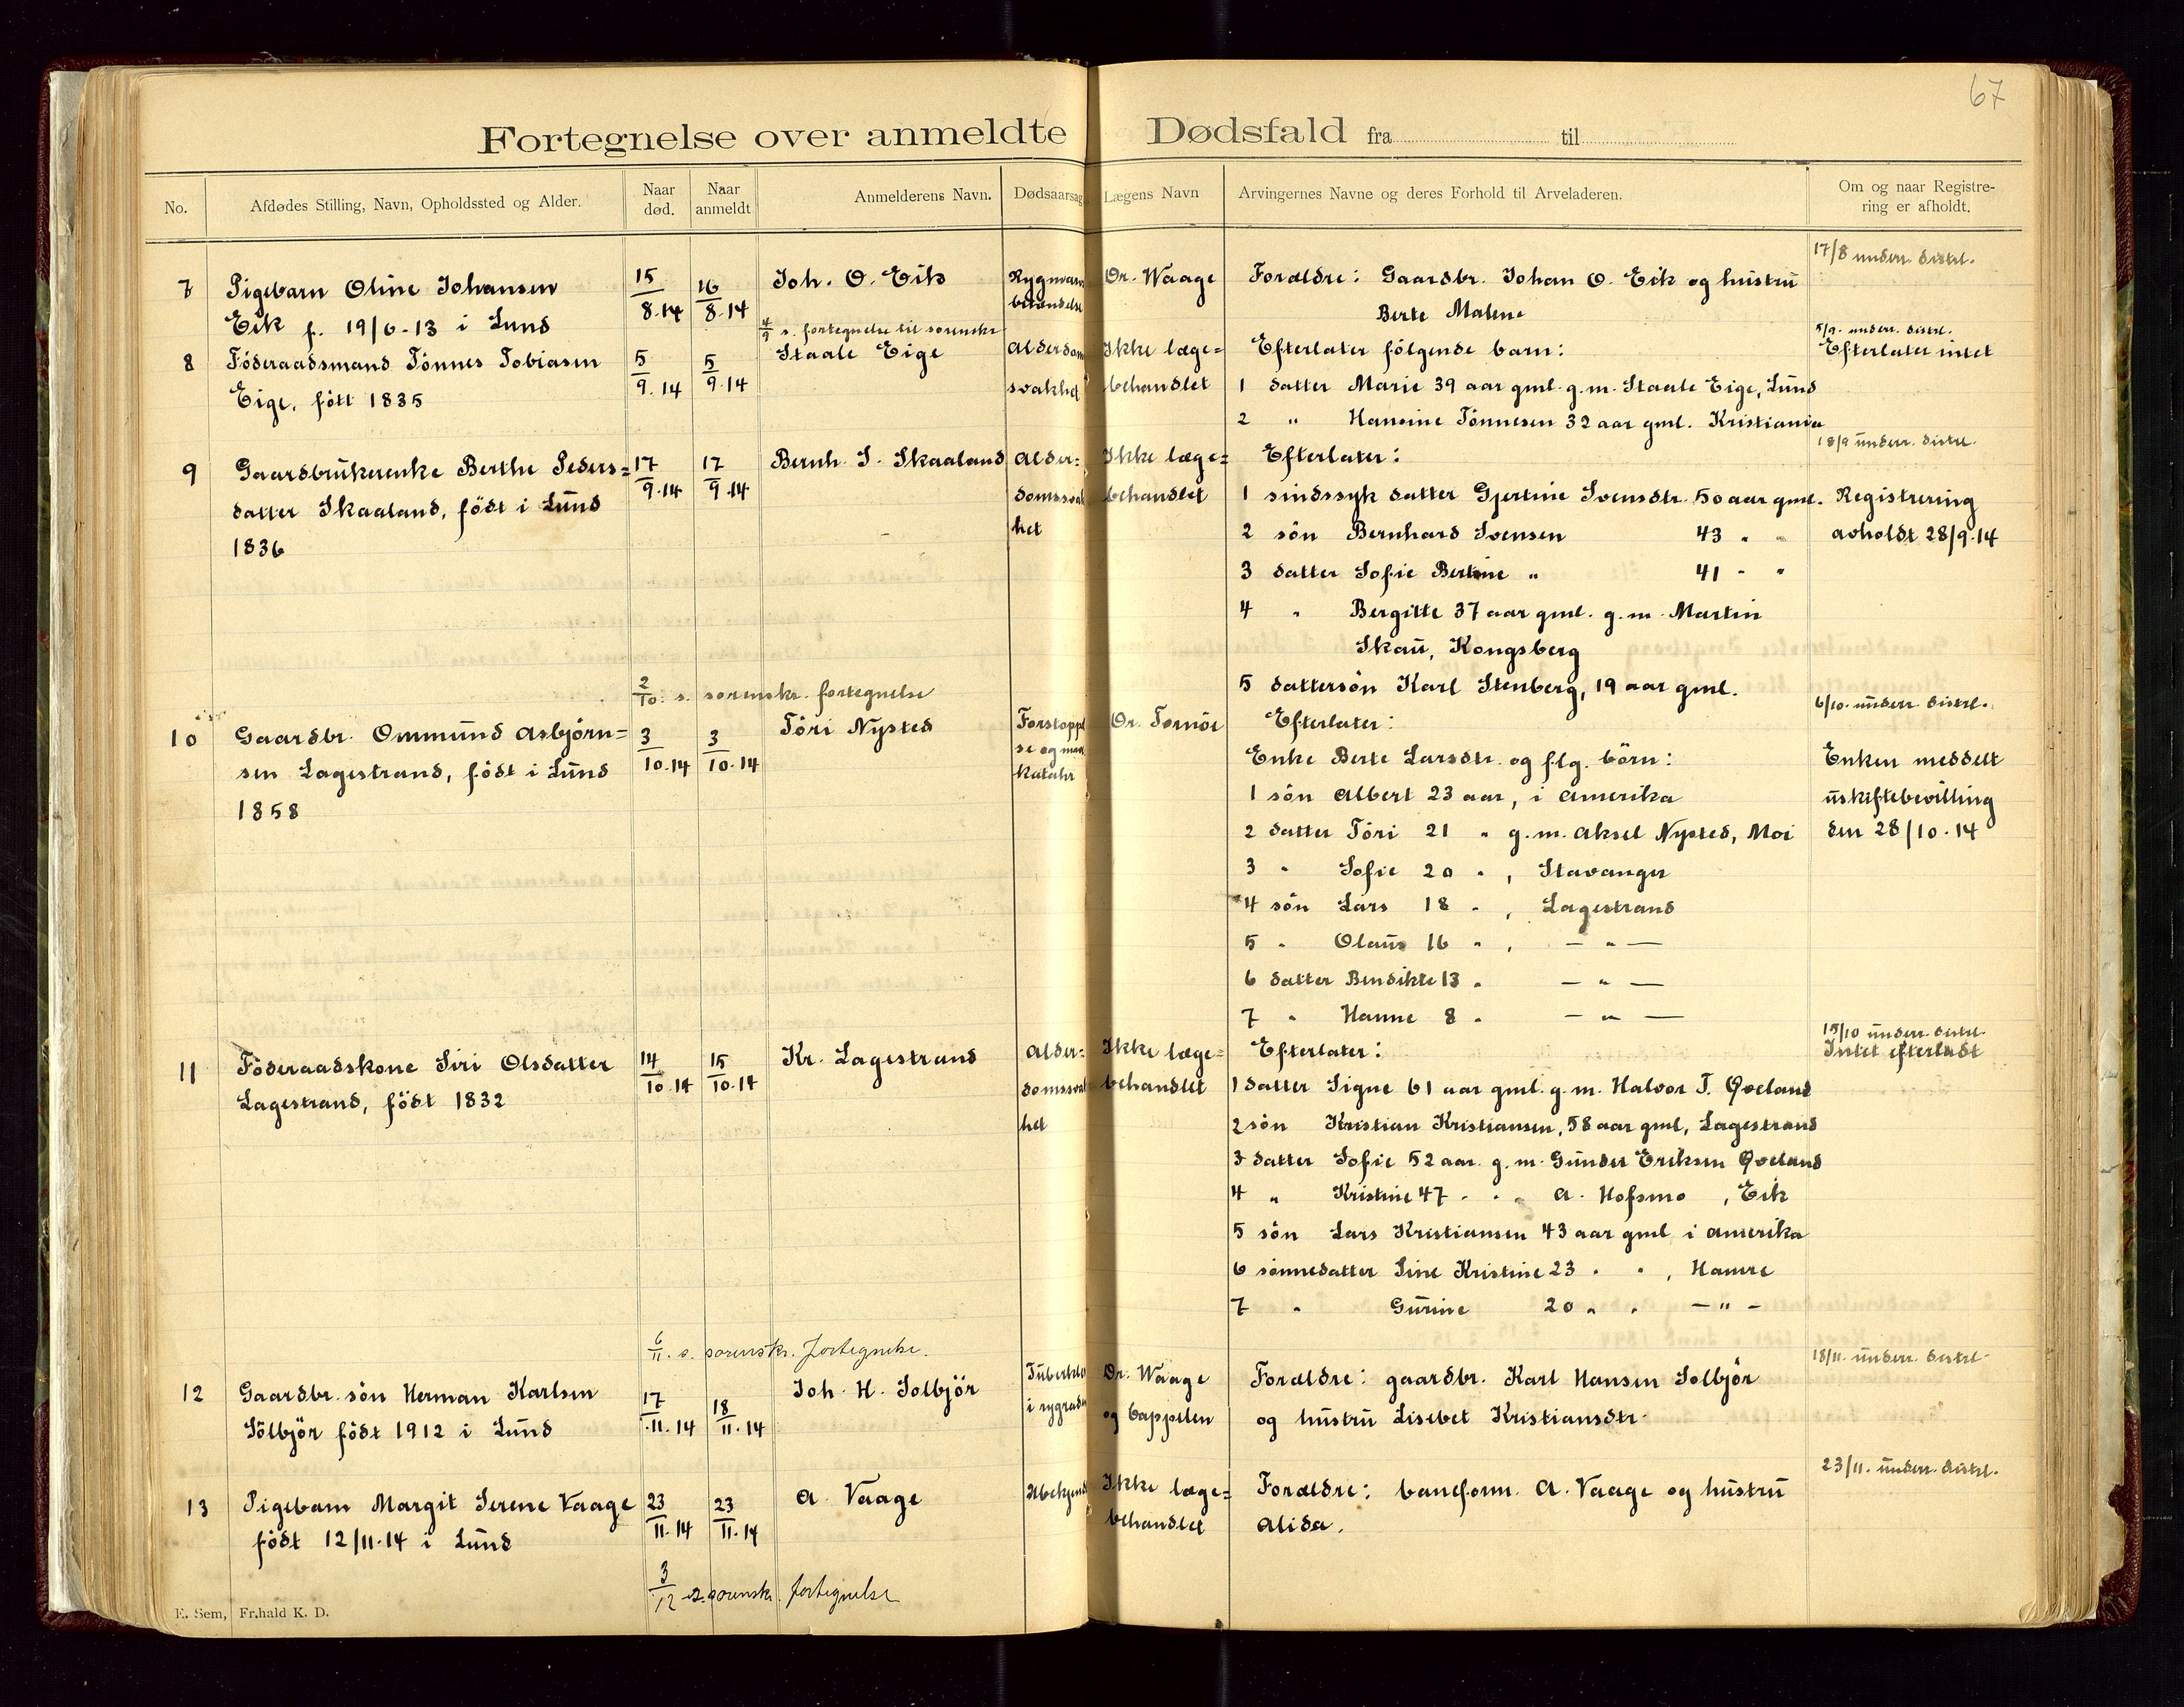 67
Fortegnelse over anmeldte Dødsfald fra til
No. Afdødes Stilling, Navn, Opholdssted og Alder. Naar død. Naar anmeldt Anmelderens Navn. Dødsaarsag Lægens Navn Arvingernes Navne og deres Forhold til Arveladeren. Om og naar Registrering er afholdt.
17/8 underr. distrl.
7 Pigebarn Oline Johansen 15/8.14 16/8.14 Joh. O. Eik Rygmarvs Dr. Waage Foraldre: Gaardbr. Johan O. Eik og hustru
Eik f. 19/6-13 i Lund betændelse Berte Malene
4/9 s. fortegnelse til sorenskr
5/9. underr. distrl.
8 Föderaadsmand Tönnes Tobiasen 5/9.14 5/9.14 Staale Eige Alderdom Ikke læge= Efterlater fölgende barn: Efterlater intet
Eige, fött 1835 svakhet behandlet 1 datter Marie 39 aar gml. g.m. Staale Eige, Lund
2 " Hansine Tönnesen 32 aar gml. Kristiania
18/9 underr. distrl.
9 Gaardbrukerenke Berthe Peders= 17/9.14 17/9.14 Bernh. S. Skaaland Alder= Ikke læge= Efterlater:
datter Skaaland, födt i Lund domssvak behandlet 1 sindssyk datter Gjertine Svensdtr. 50 aar gml. Registrering
1836 het 2 sön Bernhard Svensen 43 " " avholdt 28/9.14
3 datter Sofie Bertine " 41 " "
4 " Bergitte 37 aar gml. g.m. Martin
Skau, Kongsberg
5 dattersön Karl Stenberg, 19 aar gml.
2/10. s. sorenskr. fortegnelse
6/10. underr. distrl.
10 Gaardbr. Ommund Asbjörn= 3/10.14 3/10.14 Töri Nysted Forstoppel Dr. Tornöe Efterlater:
sen Lagestrand, födt i Lund se og mave Enke Berte Larsdtr. og flg. börn: Enken meddelt
1858 katahr 1 sön Albert 23 aar, i Amerika uskiftebevilling
2 datter Töri 21 " g.m. Aksel Nysted, Moi den 28/10.14
3 " Sofie 20 " , Stavanger
4 sön Lars 18 " , Lagestrand
5 " Olaus 16 " , — " —
6 datter Bendikte 13 " — " —
7 " Hanne 8 " — " —
15/10 underr. distrl.
11 Föderaadskone Siri Olsdatter 14/10.14 15/10.14 Kr. Lagestrand Alder= Ikke læge= Efterlater: Intet efterladt
Lagestrand, födt 1832 domssvak behandlet 1 datter Signe 61 aar gml. g.m. Halvor T. Qveland
het 2 sön Kristian Kristiansen, 58 aar gml, Lagestrand
3 datter Sofie 52 aar. g.m. Gunder Eriksen Qveland
4 " Kristine 47 " " " A. Hofsmo , Eik
5 sön Lars Kristiansen 43 aar gml i Amerika
6 sönnedatter Sine Kristine 23 " " , Hamre
7 " Gurine 20 " " — " —
6/11. s. sorenskr. fortegnelse.
18/11. underr. distrl.
12 Gaardbr. sön Herman Karlsen 17/11.14 18/11.14 Joh. H. Solbjör Tuberkler Dr. Waage Foraldre: gaardbr. Karl Hansen Solbjör
Sölbjör födt 1912 i Lund i rygraden og Cappelen og hustru Lisebet Kristiansdtr.
23/11. underr. distrl.
13 Pigebarn Margit Serene Vaage 23/11.14 23/11.14 A. Vaage Ubekjendt Ikke læge= Foraldre: baneform. A. Vaage og hustru
födt 12/11.14 i Lund behandlet Alida.
3/12 s. sorenskr. fortegnelse
E. Sem, Fr.hald K. D.